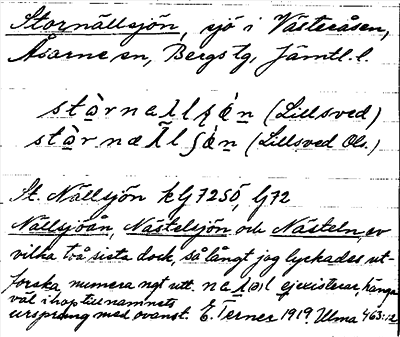 Stornällsjön, sjö i Västeråsen,
Åsarne sn, Bergs tg, Jämtl. l.
(Lillsved)
(Lillsved Ols.)
St. Nällsjön kG 7250, G72
Nällsjöån, Nästelsjön och Nästeln, av
vilka två sista dock, så långt jag lyckades ut-
forska numera ngt utt. ej existerar, hänga
väl ihop till namnets
ursprung med ovanst. E. Terner 1919. Ulma 463:12